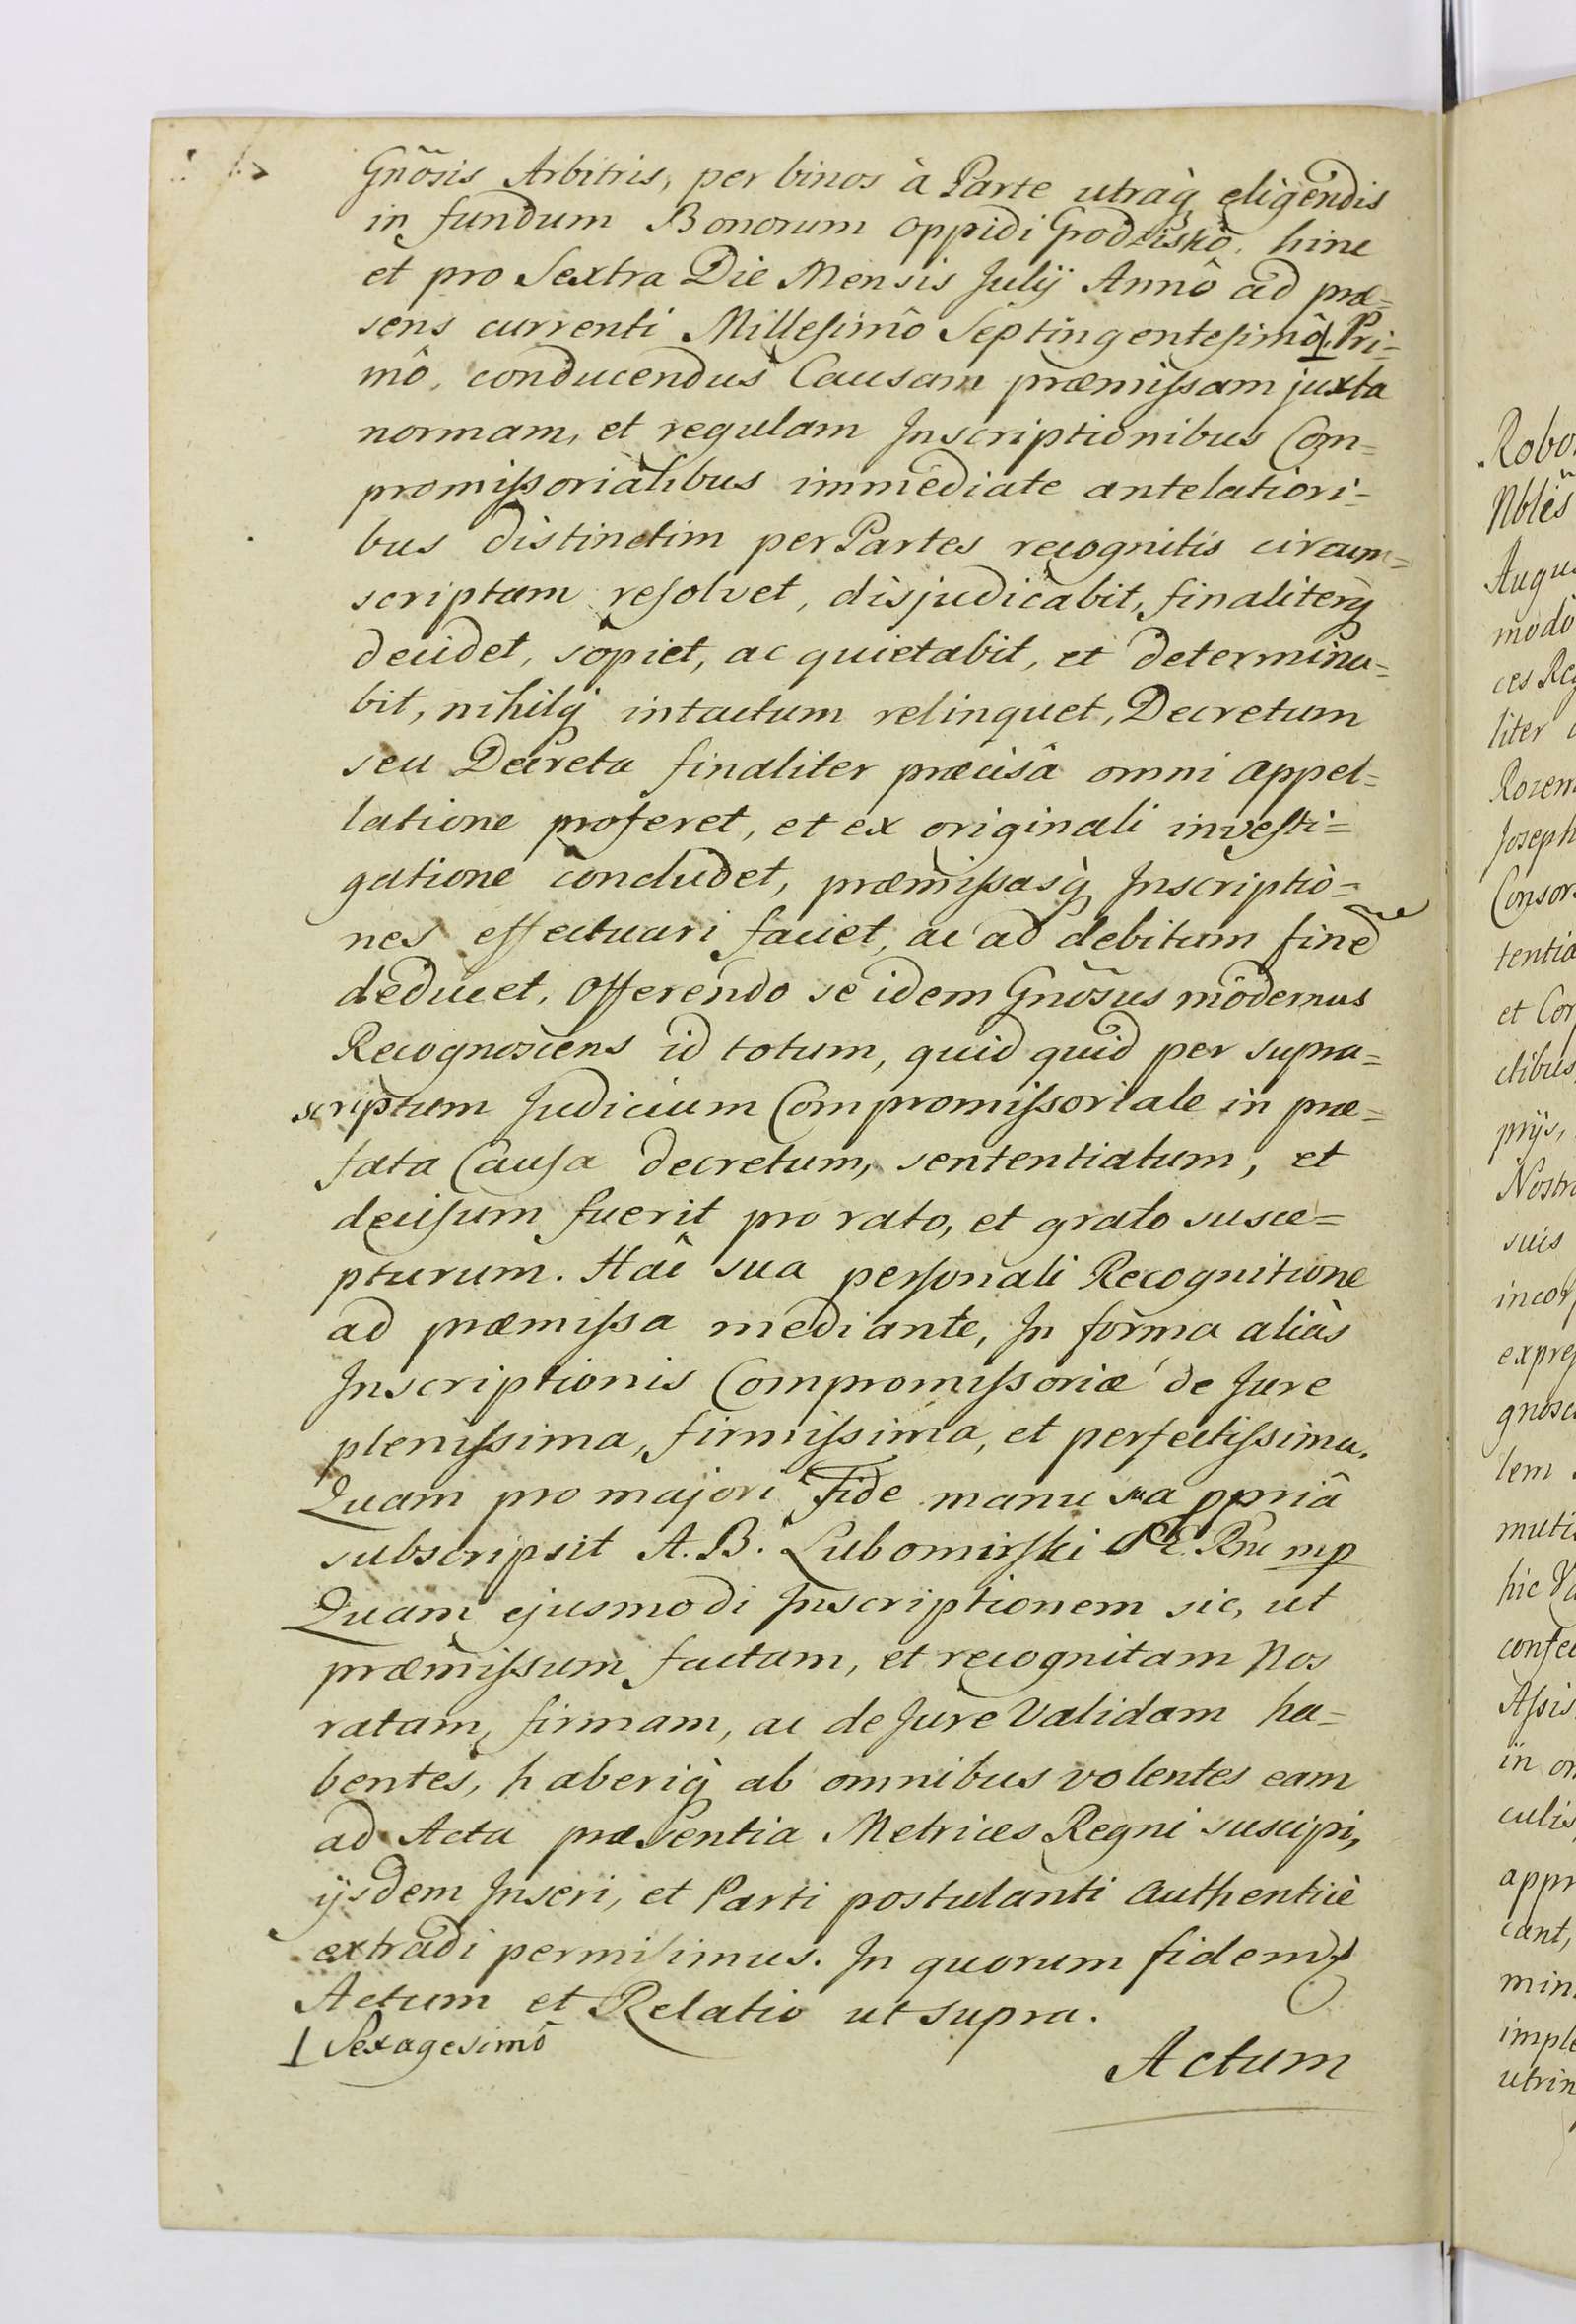 Gnõsis Arbitris, per binos à Parte utraq̨ eligendis
in fundum Bonorum oppidi Grodziskô, hinc
et pro Sextra Die Mensis Julij Annô ad præ=
sens currenti Millesimô Septingentesimô⊥ Pri=
mô, conducendus Causam præmissam juxta
normam, et regulam Inscriptionibus Com=
promissorialibus immediate antelatiori=
bus distinctim per Partes recognitis circum=
scriptam resolvet, disjudicabit, finaliterq̨
decidet, sopiet, ac quietabit, et determina=
bit, nihilq̨ intactum relinquet, Decretum
seu Decreta finaliter præcisâ omni appel=
latione proferet, et ex originali investi=
gatione concludet, præmissasq̨ Inscriptio=
nes effectuari faciet, ac ad debitum finẽ
deducet, Offerendo se idem Gnõsus modernus
Recognoscens id totum, quid quid per supra=
scriptum Judicium Compromissoriale in præ=
fata Causa decretum, sententiatum, et
decisum fuerit pro rato, et grato susce=
pturum. Hac sua personali Recognitione
ad præmissa mediante, In forma aliàs
Inscriptionis Compromissoriæ de Jure
plenissima, firmissima, et perfectissima.
Quam pro majori Fide manu sua ppriâ
subscripsit A. B. Lubomirski mp
Quam ejusmodi Inscriptionem sic, ut
præmissum factam, et recognitam Nos
ratam, firmam, ac de Jure Validam ha=
bentes, haberiq̨ ab omnibus volentes eam
ad Acta præsentia Metrices Regni suscipi,
ijsdem Inseri, et Parti postulanti authenticè
extradi permisimus. In quorum fidem
Actum et Relatio ut supra.
⊥ Sexagesimô
Actum
Robo
Nblẽs
Augu
modò
ces Reg
liter
Rozem
Joseph
Consor
tentia
et Cor
ctibus
prijs,
Nostr
suis
incor
expres
gnosc
lem
muti
hic Va
confec
Assis
in on
culis
appr
cant,
min
imple
utrin